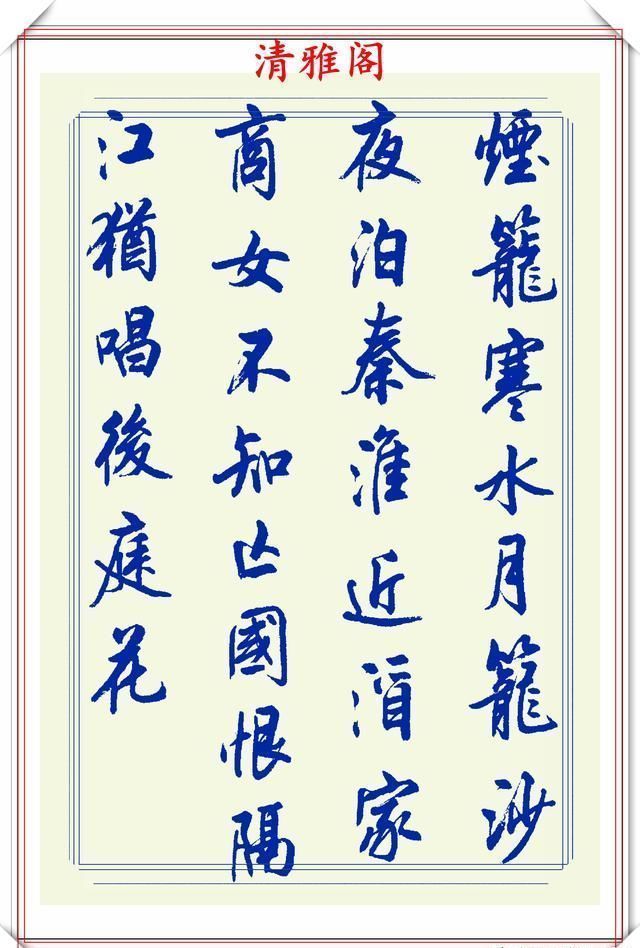 清雅阁
煙籠寒水月籠沙
夜泊秦淮近酒家
商女不知亡國恨隔
江猶唱後庭花